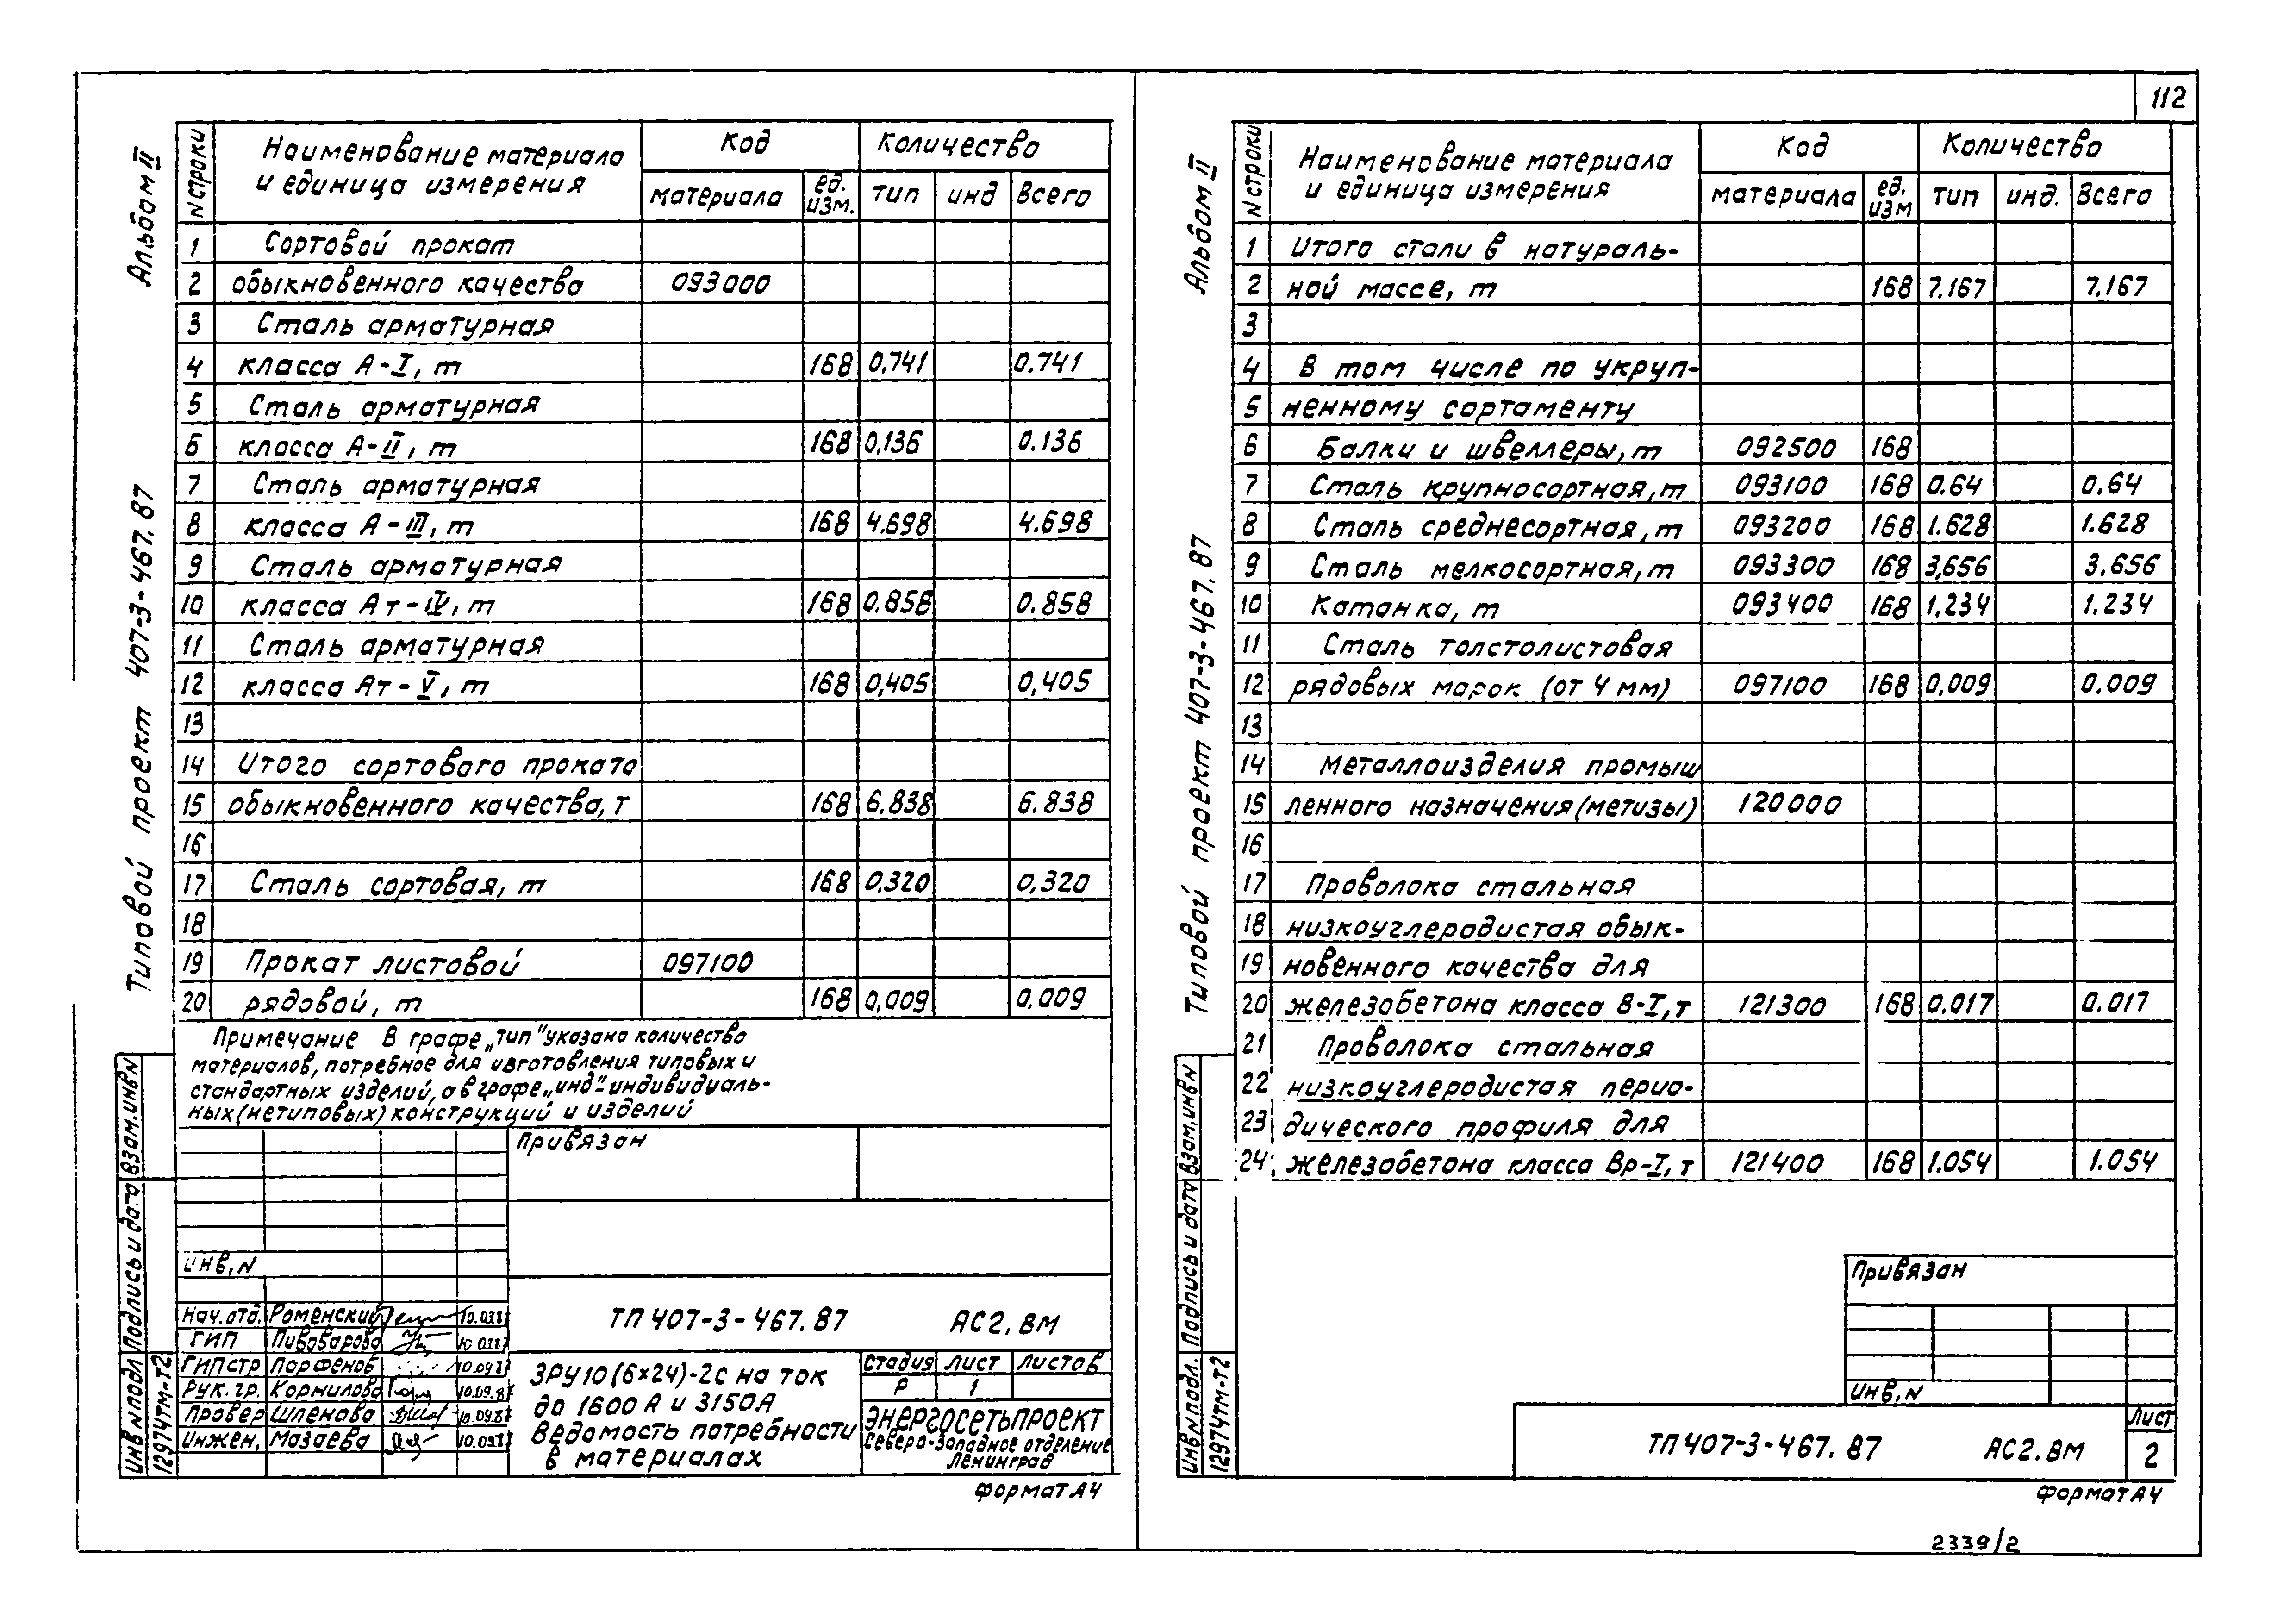 112
Альбом II
Типовой проект 407-3-467.87
N строки
Наименование материала и единица измерения
Код
Количество
материала
ед. изм.
тип
инд
Всего
1 Сортовой прокат
2 обыкновенного качества 093000
3 Сталь арматурная
4 класса А-I, т 168 0.741 0.741
5 Сталь арматурная
6 класса А-II, т 168 0,136 0.136
7 Сталь арматурная
8 класса А-III, т 168 4.698 4.698
9 Сталь арматурная
10 класса Ат-IV, т 168 0.858 0.858
11 Сталь арматурная
12 класса Ат-V, т 168 0,405 0,405
13
14 Итого сортового проката
15 обыкновенного качества, т 168 6.838 6.838
16
17 Сталь сортовая, т 168 0.320 0,320
18
19 Прокат листовой 097100
20 рядовой, т 168 0,009 0.009
Примечание В графе „тип" указано количество
материалов, потребное для изготовления типовых и
стандартных изделий, а в графе „инд"-индивидуаль-
ных (нетиповых) конструкций и изделий
Привязан
Инв. N
Нач.отд. Роменский 10.09.87
ГИП Пивоварова 10.09.87
ГИП стр Парфенов 10.09.87
Рук. гр. Корнилова 10.09.87
Провер Шленова 10.09.87
Инжен. Мазаева 10.09.87
ТП 407-3-467.87 АС2.ВМ
ЗРУ10(6х24)-2С на ток
до 1600 А и 3150А
Ведомость потребности
в материалах
Стадия Лист Листов
Р 1
Энергосетьпроект
Северо-Западное отделение
Ленинград
Формат А4
Инв N подл Подпись и дата Взам.инв N
12974тм-т2
Альбом II
Типовой проект 407-3-467.87
N строки
Наименование материала и единица измерения
Код
Количество
материала
ед. изм
тип
инд.
Всего
1 Итого стали в натураль-
2 ной массе, т 168 7.167 7.167
3
4 В том числе по укруп-
5 ненному сортаменту
6 Балки и швеллеры, т 092500 168
7 Сталь крупносортная, т 093100 168 0.64 0.64
8 Сталь среднесортная, т 093200 168 1.628 1.628
9 Сталь мелкосортная, т 093300 168 3,656 3.656
10 Катанка, т 093400 168 1.234 1.234
11 Сталь толстолистовая
12 рядовых марок (от 4 мм) 097100 168 0,009 0.009
13
14 Металлоизделия промыш
15 ленного назначения (метизы) 120000
16
17 Проволока стальная
18 низкоуглеродистая обык-
19 новенного качества для
20 железобетона класса В-I, т 121300 168 0.017 0.017
21 Проволока стальная
22 низкоуглеродистая перио-
23 дического профиля для
24 железобетона класса Вр-I, т 121400 168 1.054 1.054
Привязан
Инв. N
ТП 407-3-467.87 АС2.ВМ
Лист
2
Формат А4
Инв N подл. Подпись и дата Взам.инв N
12974тм-т2
2339/2